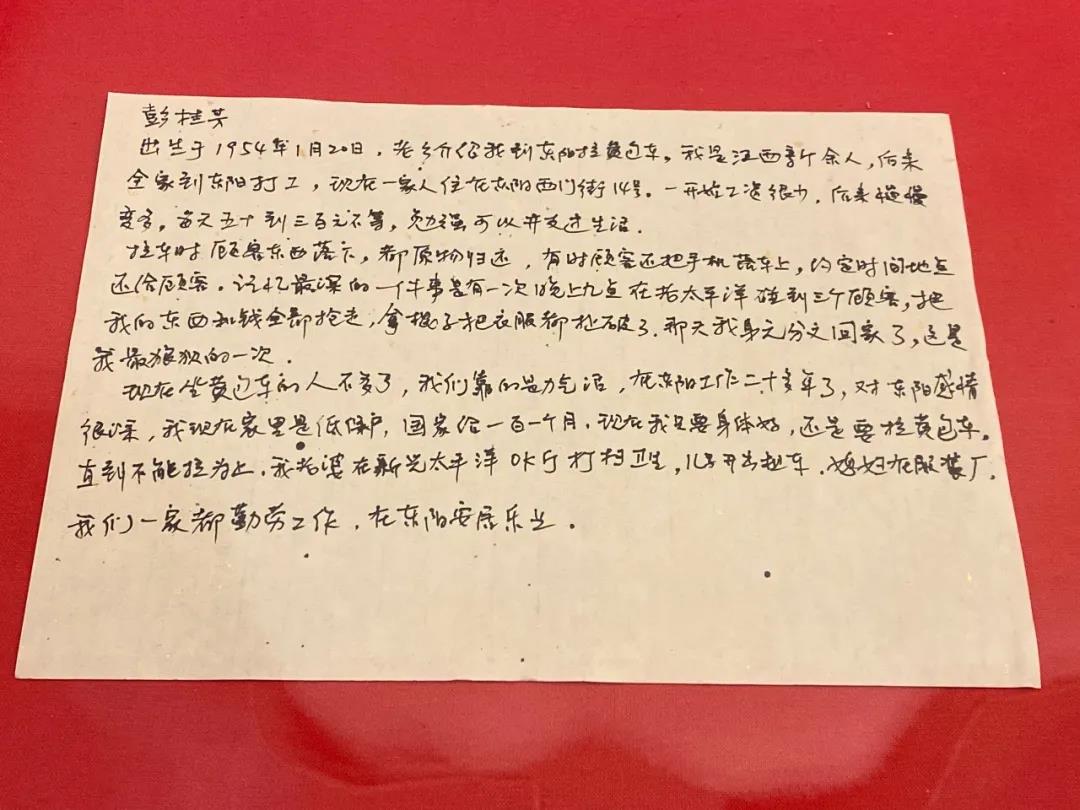 彭桂芳
出生于1954年1月20日，老乡介绍我到东阳拉黄包车。我是江西新余人，后来
全家到东阳打工，现在一家人住在东阳西门街14号。一开始工资很少，后来慢慢
变多，每天五十到三百元不等，勉强可以开支过生活.
拉车时顾客东西落下，都原物归还，有时顾客还把手机落车上，约定时间地点
还给顾客。记忆最深的一件事是有一次晚上九点在老太平洋碰到三个顾客，把
我的东西和钱全部抢走，拿棍子把衣服都扯破了.那天我身无分文回家了，这是
我最狼狈的一次.
现在坐黄包车的人不多了，我们靠的是力气活，在东阳工作二十多年了，对东阳感情
很深，我现在家里是低保户，国家给一百一个月.现在我只要身体好，还是要拉黄包车。
直到不能拉为止.我老婆在新光太平洋OK厅打扫卫生，儿子开出租车.媳妇在服装厂.
我们一家都勤劳工作.在东阳安居乐业.